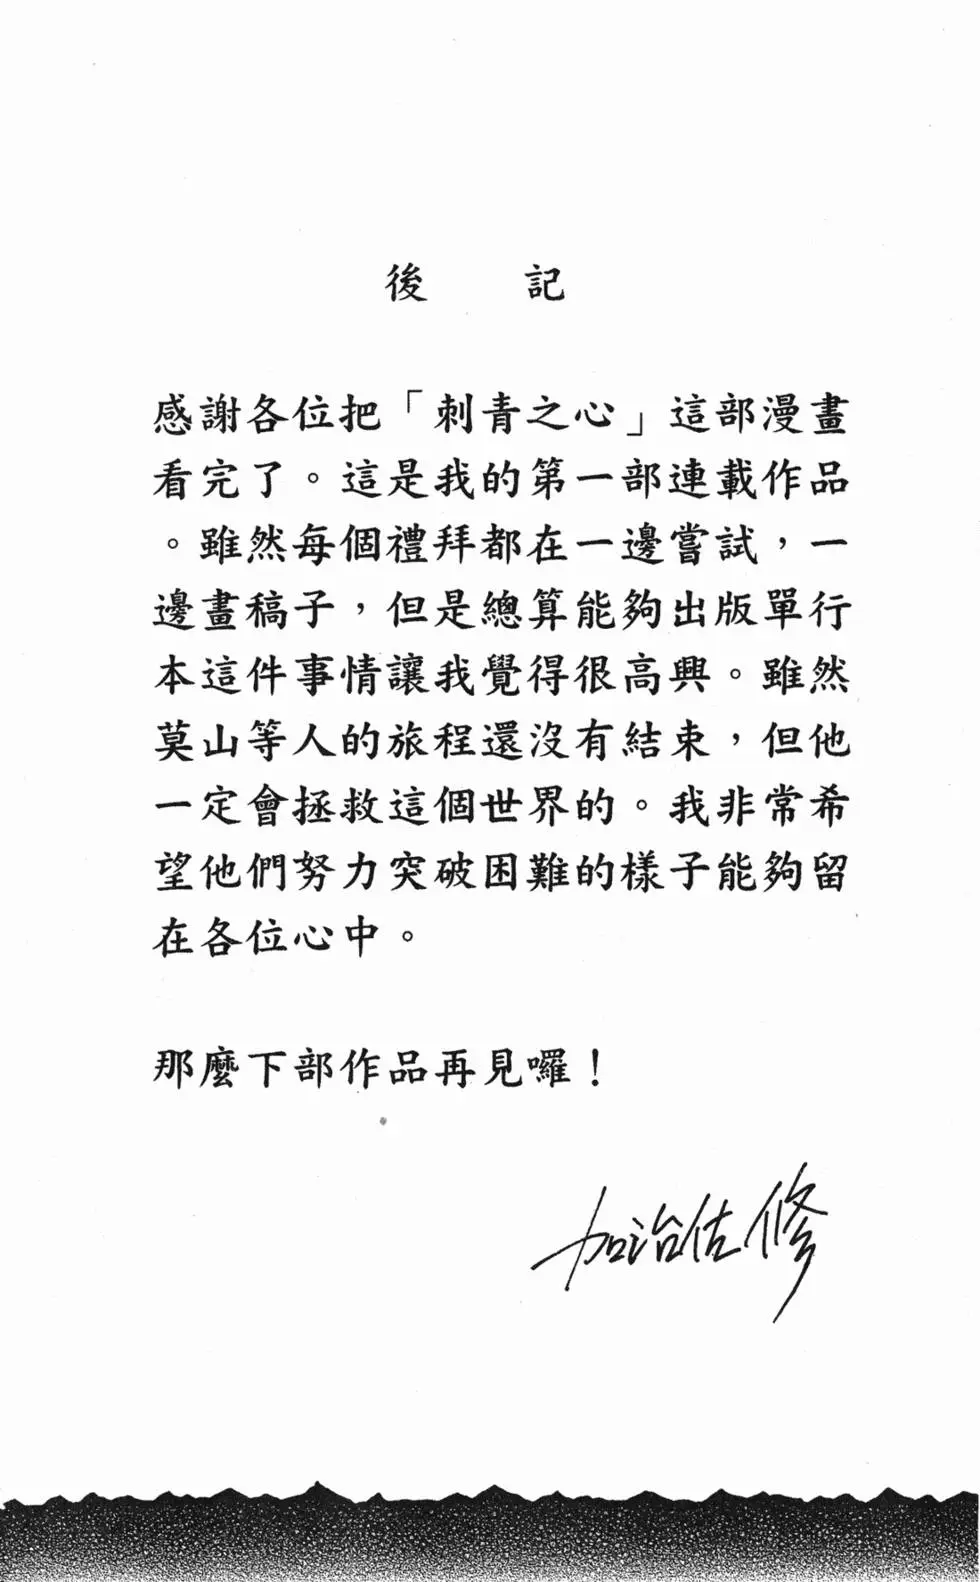 後 記
感謝各位把「刺青之心」這部漫畫
看完了。這是我的第一部連載作品
。雖然每個禮拜都在一邊嘗試，一
邊畫稿子，但是總算能夠出版單行
本這件事情讓我覺得很高興。雖然
莫山等人的旅程還沒有結束，但他
一定會拯救這個世界的。我非常希
望他們努力突破困難的樣子能夠留
在各位心中。
那麼下部作品再見囉！
加治佐修